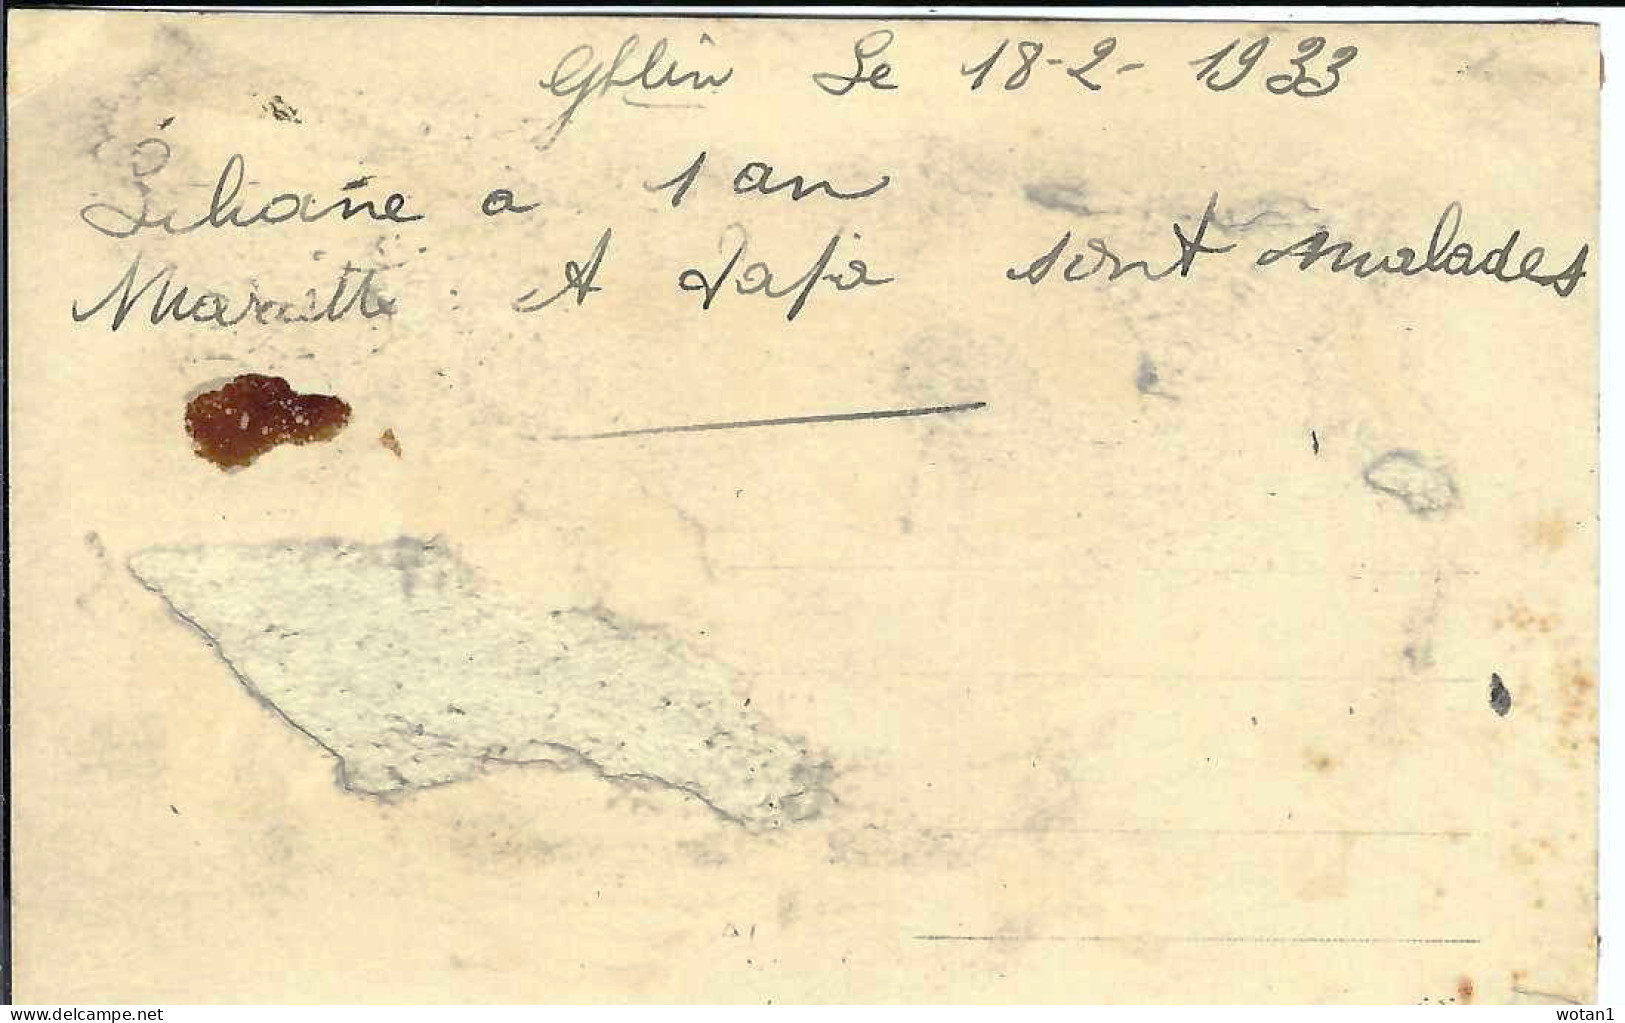 Ghlin Le 18-2-1933
Liliane a 1 an
Mariette et Papa sont malades
www.delcampe.net
wotan1